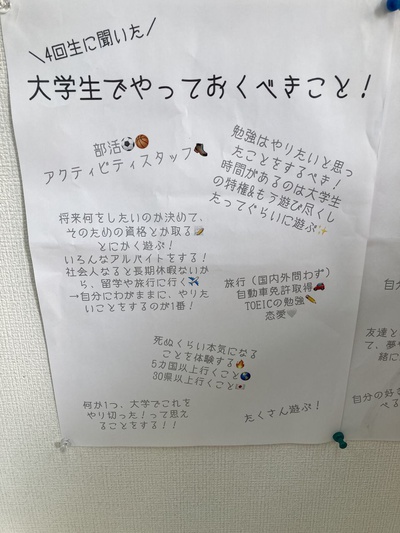 \4回生に聞いた/
大学生でやっておくべきこと！
部活⚽🏀
アクティビティスタッフ🥾
勉強はやりたいと思っ
たことをするべき！
時間があるのは大学生
の特権&もう遊び尽くし
たってぐらいに遊ぶ✨
将来何をしたいのか決めて、
そのための資格とか取る📝
とにかく遊ぶ！
いろんなアルバイトをする！
社会人なると長期休暇ないか
ら、留学や旅行に行く✈️
→自分にわがままに、やりた
いことをするのが1番！
旅行（国内外問わず）
自動車免許取得🚗
TOEICの勉強✏️
恋愛🤍
死ぬくらい本気になる
ことを体験する🔥
5カ国以上行くこと🌏
30県以上行くこと🇯🇵
何か1つ、大学でこれを
やり切った！って思え
ることをする！！
たくさん遊ぶ！
自分
友達と
て、夢
緒に
自分の好き
べる